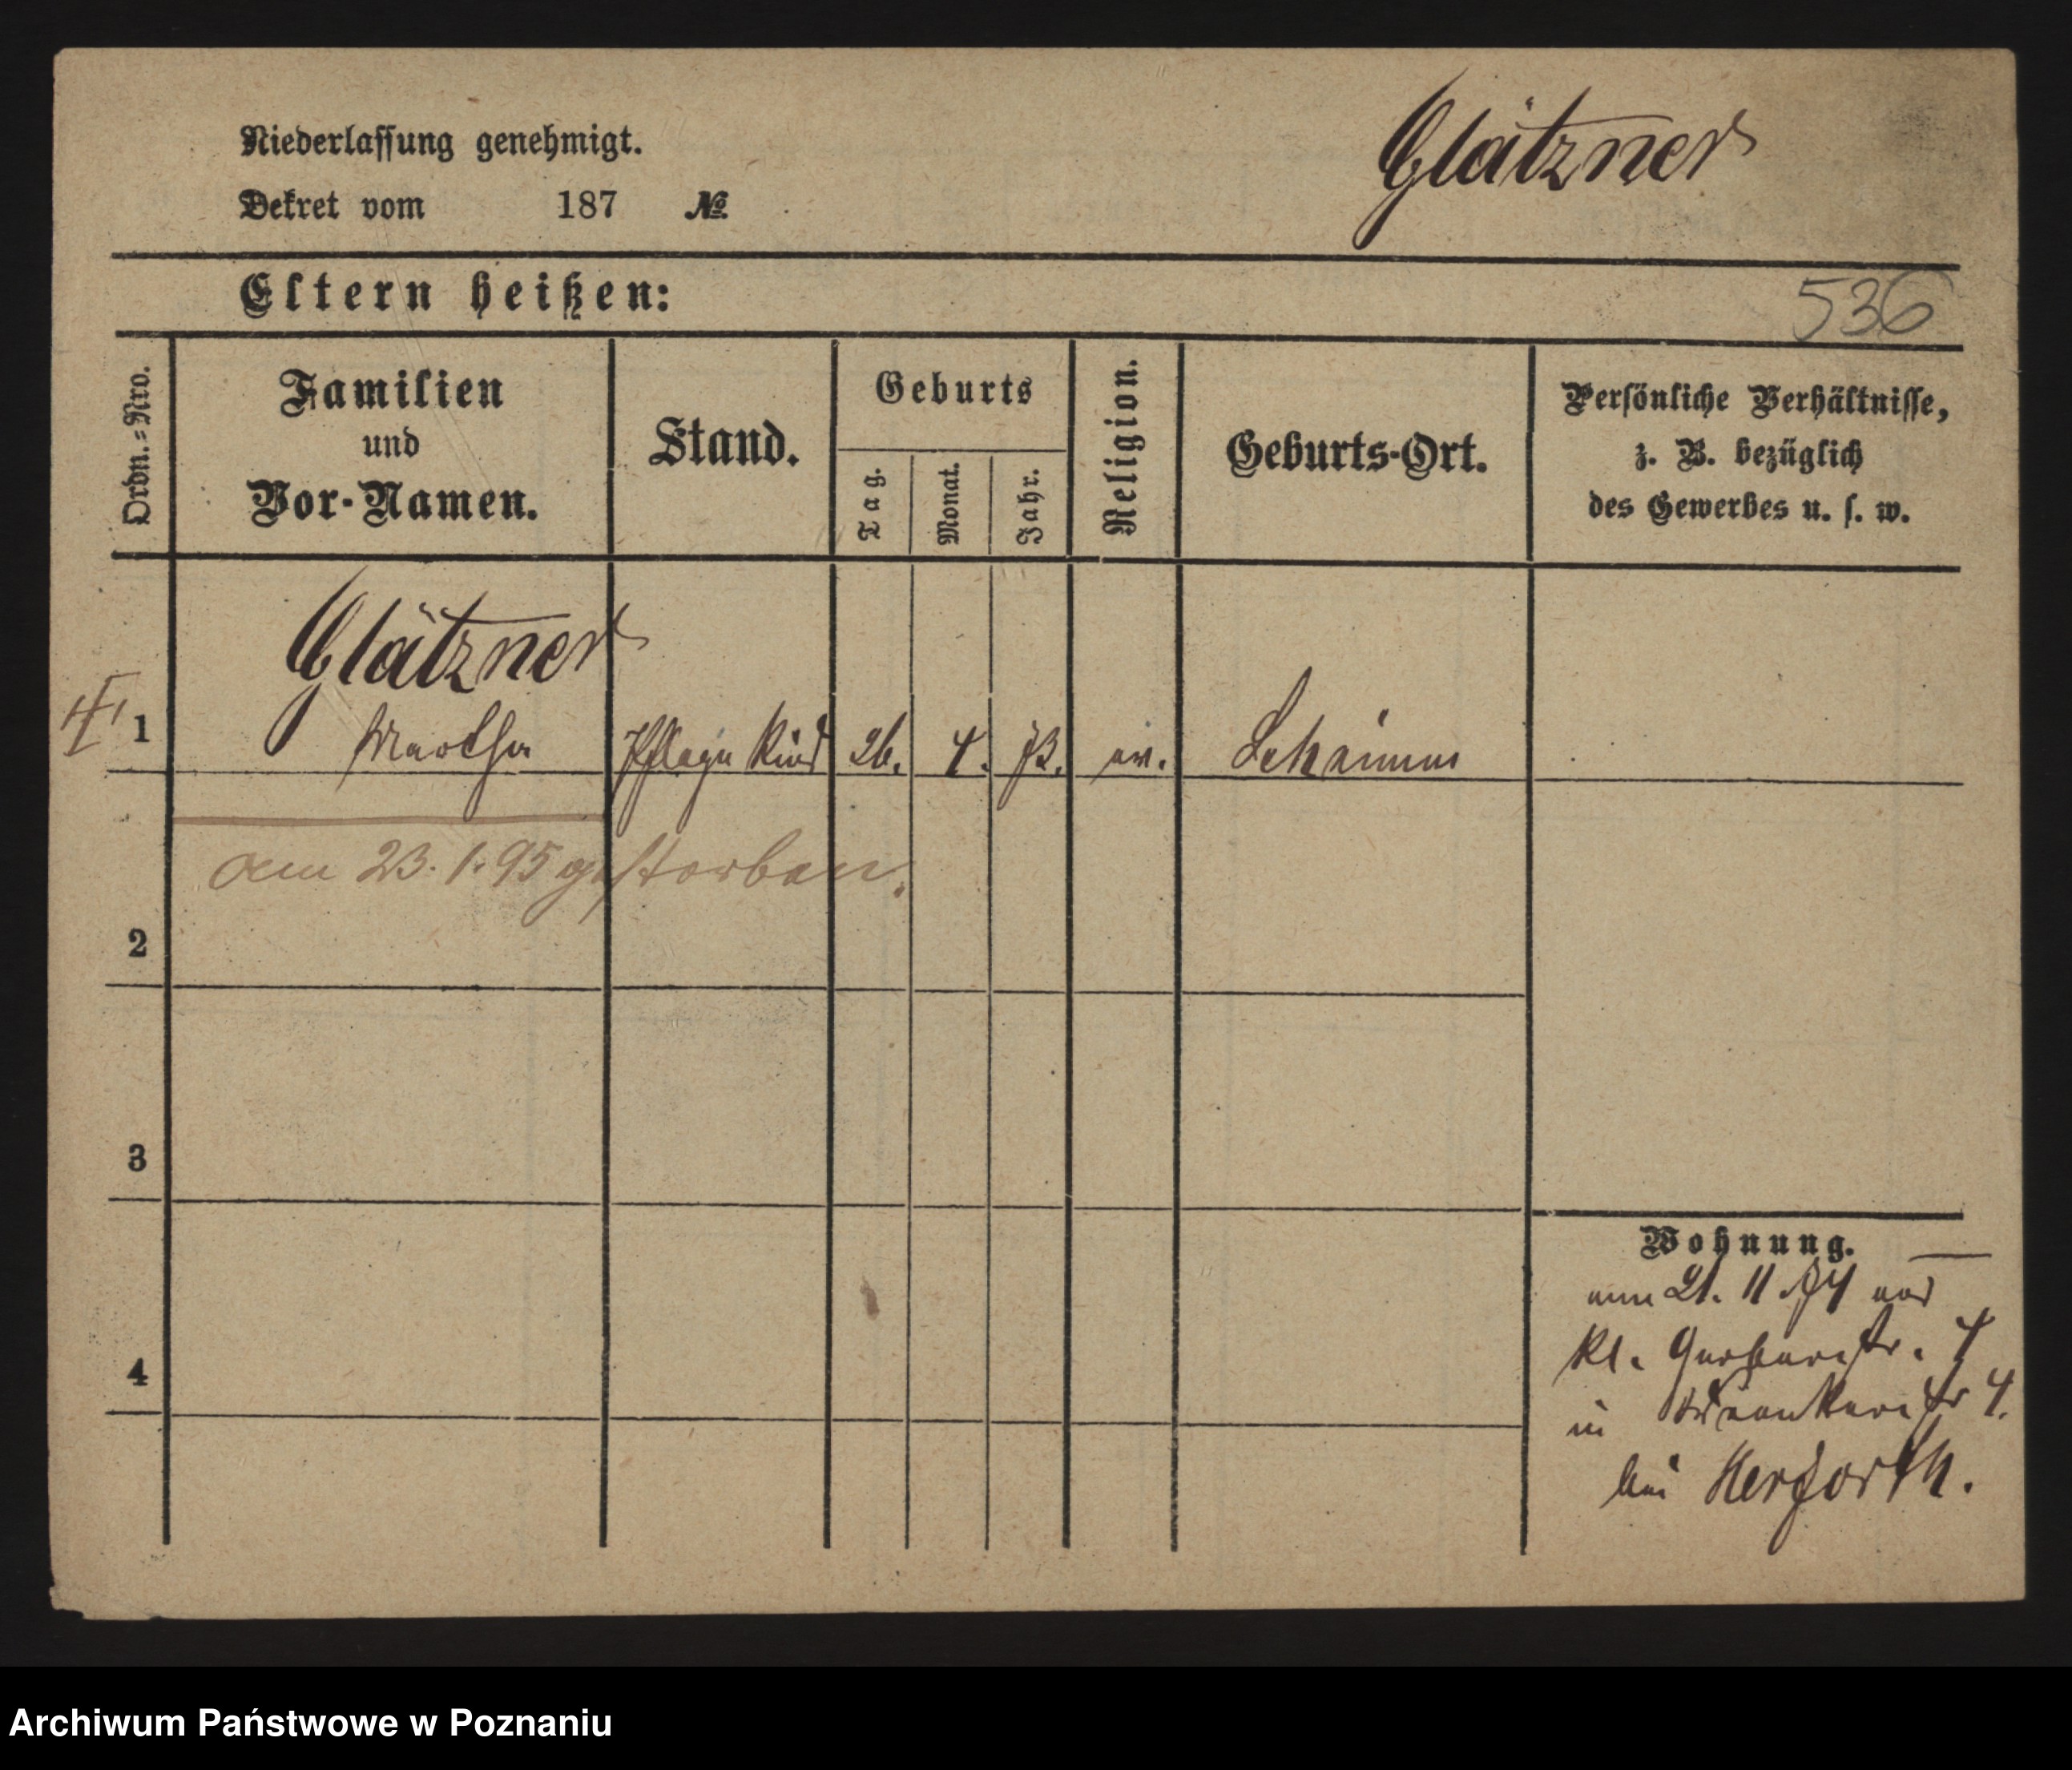 Niederlassung genehmigt.
Dekret vom 187 №
Glätzner
Eltern heißen:
536
Ordn.-Nro.
Familien
und
Vor-Namen.
Stand.
Geburts
Tag.
Monat.
Jahr.
Religion.
Geburts-Ort.
Persönliche Verhältnisse,
z. B. bezüglich
des Gewerbes u. s. w.
Glätzner
1 Martha Pflege Kind 26. 4. 73. ev.
am 23. 1. 95 gestorben.
2
3
4
Wohnung.
21. 11 74
Kl. Gerberstr. 4
in 4.
bei Herforth.
Archiwum Państwowe w Poznaniu